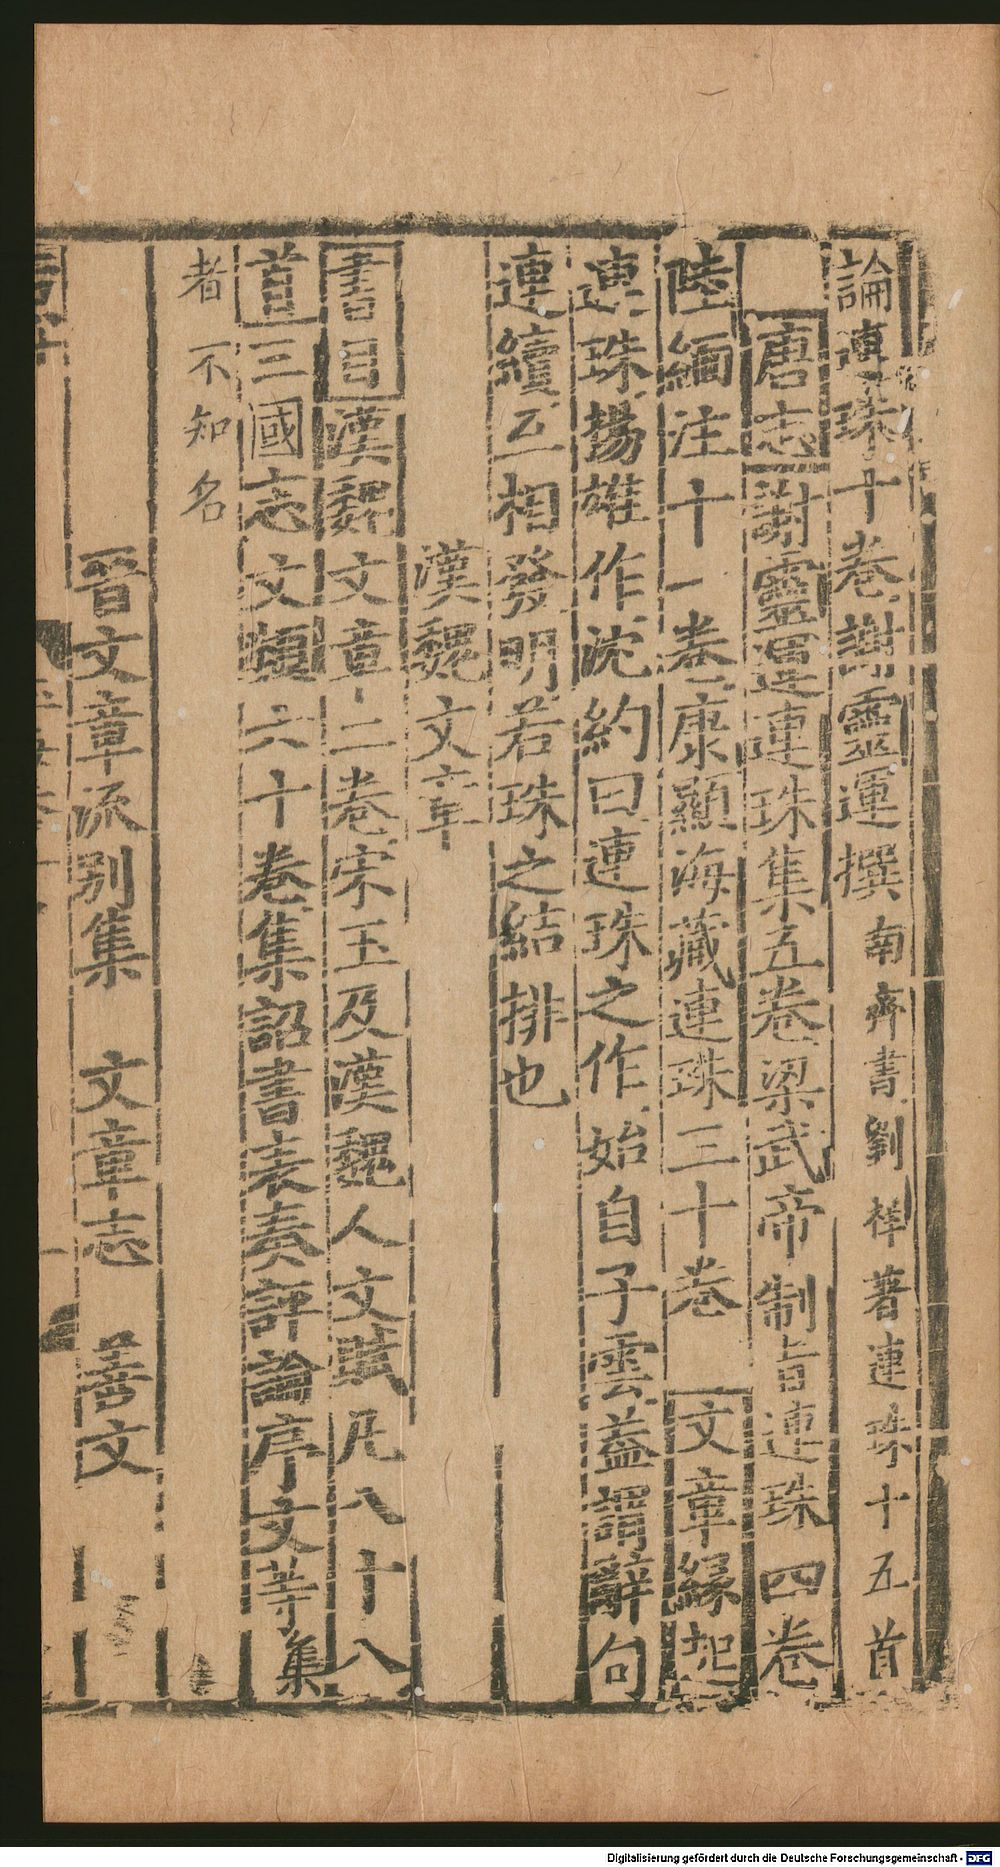 論連珠十卷謝靈運撰南齊書劉祥著連珠十五首
唐志謝靈運連珠集五卷梁武帝制旨連珠四卷
陸緬注十一卷康顯海藏連珠三十卷 文章緣起
連珠揚雄作沈約曰連珠之作始自子雲蓋謂辭句
連續互相發明若珠之結排也
漢魏文章
書目漢魏文章二卷宋玉及漢魏人文賦凡八十八
首三國志文類六十卷集詔書表奏評論序文等集
者不知名
晉文章流别集 文章志 善文
Digitalisierung gefördert durch die Deutsche Forschungsgemeinschaft - DFG